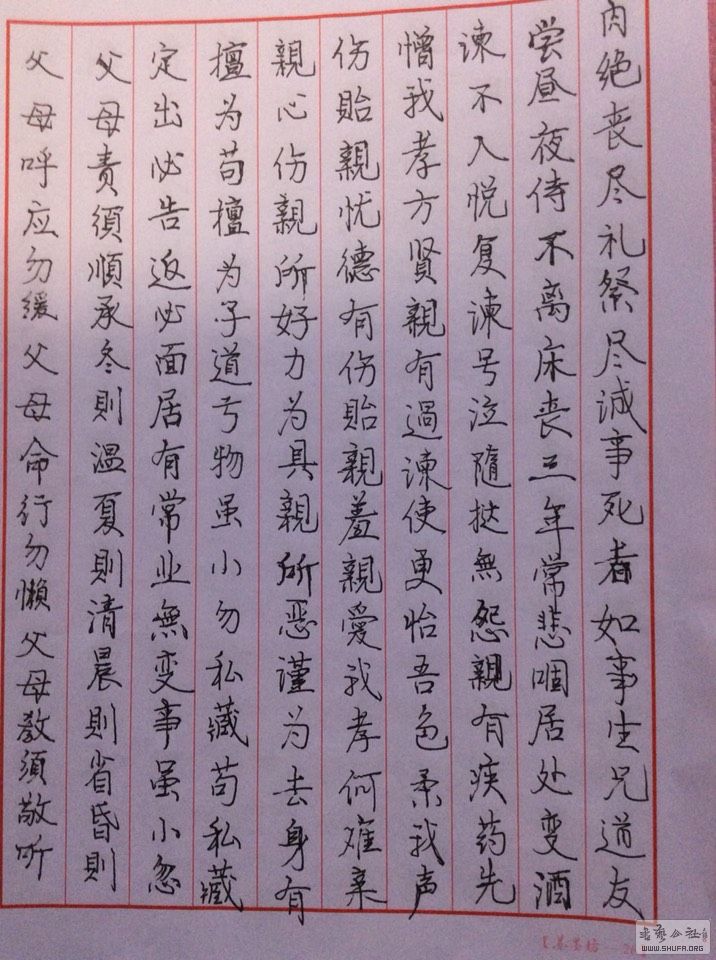 父母呼应勿緩父母命行勿懒父母教須敬听
父母责須順承冬則温夏則清晨則省昏則
定出必告返必面居有常业無变事虽小忽
擅为苟擅为子道亏物虽小勿私藏苟私藏
親心伤親所好力为具親所恶谨为去身有
伤貽親忧德有伤貽親羞親愛我孝何难亲
憎我孝方贤親有過谏使更怡吾色柔我声
谏不入悦复谏号泣隨挞無怨親有疾药先
尝昼夜侍不离床丧三年常悲咽居处变酒
肉绝丧尽礼祭尽诚事死者如事生兄道友
WWW.SHUFA.ORG